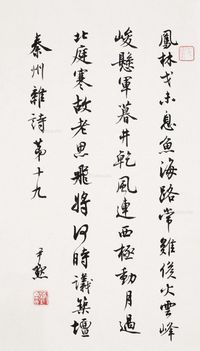 鳳林戈未息魚海路常難候火雲峰
峻懸軍幕井乾風連西極動月過
北庭寒故老思飛將何時議築壇
秦州雜詩第十九